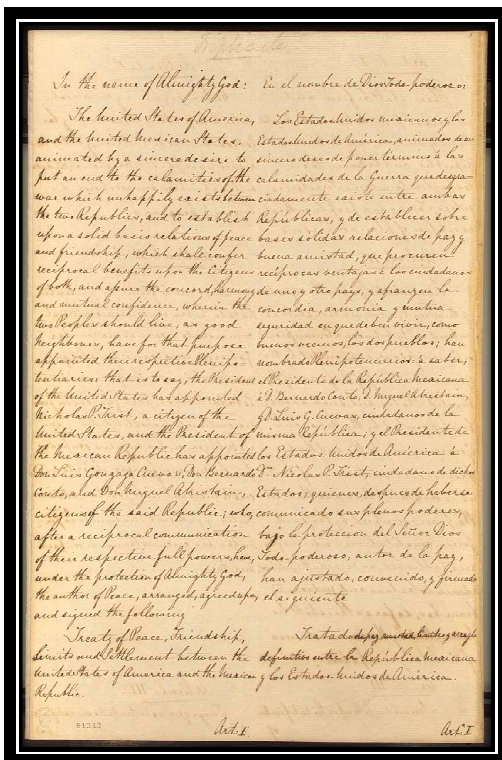 Triplicate
In the name of Almighty God:
The United States of America,
and the United Mexican States,
animated by a sincere desire to
put an end to the calamities of the
war which unhappily exists between
the two Republics, and to establish
upon a solid basis relations of peace
and friendship, which shall confer
reciprocal benefits upon the citizens
of both, and assure the concord, harmony
and mutual confidence, wherein the
two Peoples should live, as good
Neighbours, have for that purpose
appointed their respective Plenipo-
tentiaries: that is to say, the President
of the United States has appointed
Nicholas P. Trist, a citizen of the
United States, and the President of
the Mexican Republic has appointed
Don Luis Gonzaga Cuevas, Don Bernardo
Couto, and Don Miguel Atristain,
citizens of the said Republic; who,
after a reciprocal communication
of their respective full powers, have,
under the protection of Almighty God,
the author of Peace, arranged, agreed upon,
and signed the following
Treaty of Peace, Friendship,
Limits and Settlement between the
United States of America and the Mexican
Republic.
Art: I
En el nombre de Dios Todo-poderoso:
Los Estados Unidos mexicanos y los
Estados Unidos de América, animados de un
sincero deseo de poner termino á las
calamidades de la Guerra que desgra-
ciadamente existe entre ambas
Repúblicas, y de establecer sobre
bases sólidas relaciones de paz y
buena amistad, que procuren
recíprocas ventajas á los ciudadanos
de uno y otro pays, y afianzen la
concordia, armonia y mutua
seguridad en que deben vivir, como
buenos vecinos, los dos pueblos; han
nombrado Plenipotenciarios: á saber,
el Presidente de la República Mexicana
á D. Bernardo Couto, D. Miguel Atristain,
y D. Luis G. Cuevas, ciudadanos de la
misma República; y el Presidente de
los Estados Unidos de América á
Dn. Nicolas P. Trist, ciudadano de dichos
Estados; quienes, despues de haberse
comunicado sus plenos poderes,
bajo la proteccion del Señor Dios
Todo-poderoso, autor de la paz,
han ajustado, convenido, y firmado
el siguiente
Tratado de paz, amistad, límites y arreglo
definitivo entre la República Mexicana
y los Estados Unidos de América.
Art.º I